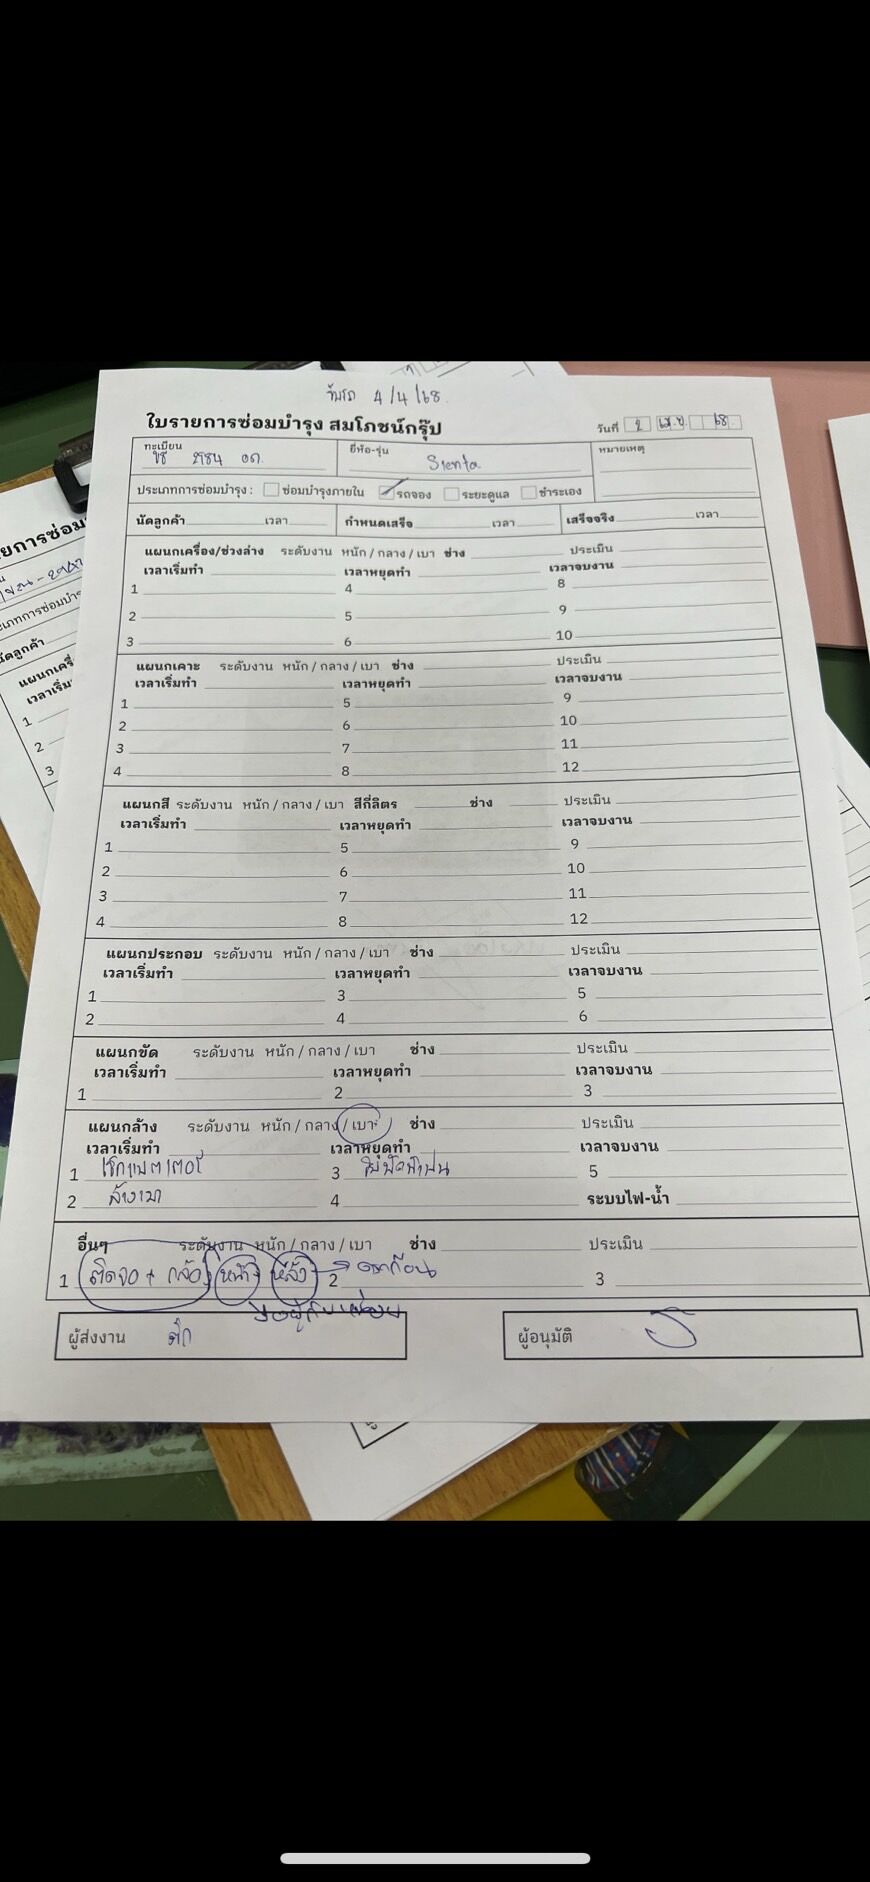 รับรถ 4/4/68
ใบรายการซ่อมบำรุง สมโภชน์กรุ๊ป วันที่ 2 เม.ย. 68
ทะเบียน ยี่ห้อ-รุ่น Sienta หมายเหตุ
ประเภทการซ่อมบำรุง : ซ่อมบำรุงภายใน รถจอง ระยะดูแล ชำระเอง
นัดลูกค้า เวลา กำหนดเสร็จ เวลา เสร็จจริง เวลา
แผนกเครื่อง/ช่วงล่าง ระดับงาน หนัก / กลาง / เบา ช่าง ประเมิน
เวลาเริ่มทำ เวลาหยุดทำ เวลาจบงาน
1 4 8
2 5 9
3 6 10
แผนกเคาะ ระดับงาน หนัก / กลาง / เบา ช่าง ประเมิน
เวลาเริ่มทำ เวลาหยุดทำ เวลาจบงาน
1 5 9
2 6 10
3 7 11
4 8 12
แผนกสี ระดับงาน หนัก / กลาง / เบา สีกี่ลิตร ช่าง ประเมิน
เวลาเริ่มทำ เวลาหยุดทำ เวลาจบงาน
1 5 9
2 6 10
3 7 11
4 8 12
แผนกประกอบ ระดับงาน หนัก / กลาง / เบา ช่าง ประเมิน
เวลาเริ่มทำ เวลาหยุดทำ เวลาจบงาน
1 3 5
2 4 6
แผนกขัด ระดับงาน หนัก / กลาง / เบา ช่าง ประเมิน
เวลาเริ่มทำ เวลาหยุดทำ เวลาจบงาน
1 2 3
แผนกล้าง ระดับงาน หนัก / กลาง / เบา ช่าง ประเมิน
เวลาเริ่มทำ เวลาหยุดทำ เวลาจบงาน
1 เช็กแบตเตอรี่ 3 5
2 ล้างเบา 4 ระบบไฟ-น้ำ
อื่นๆ ระดับงาน หนัก / กลาง / เบา ช่าง ประเมิน
1 ติดจอ + กล้อง หน้า หลัง 2 3
ผู้ส่งงาน ผู้อนุมัติ